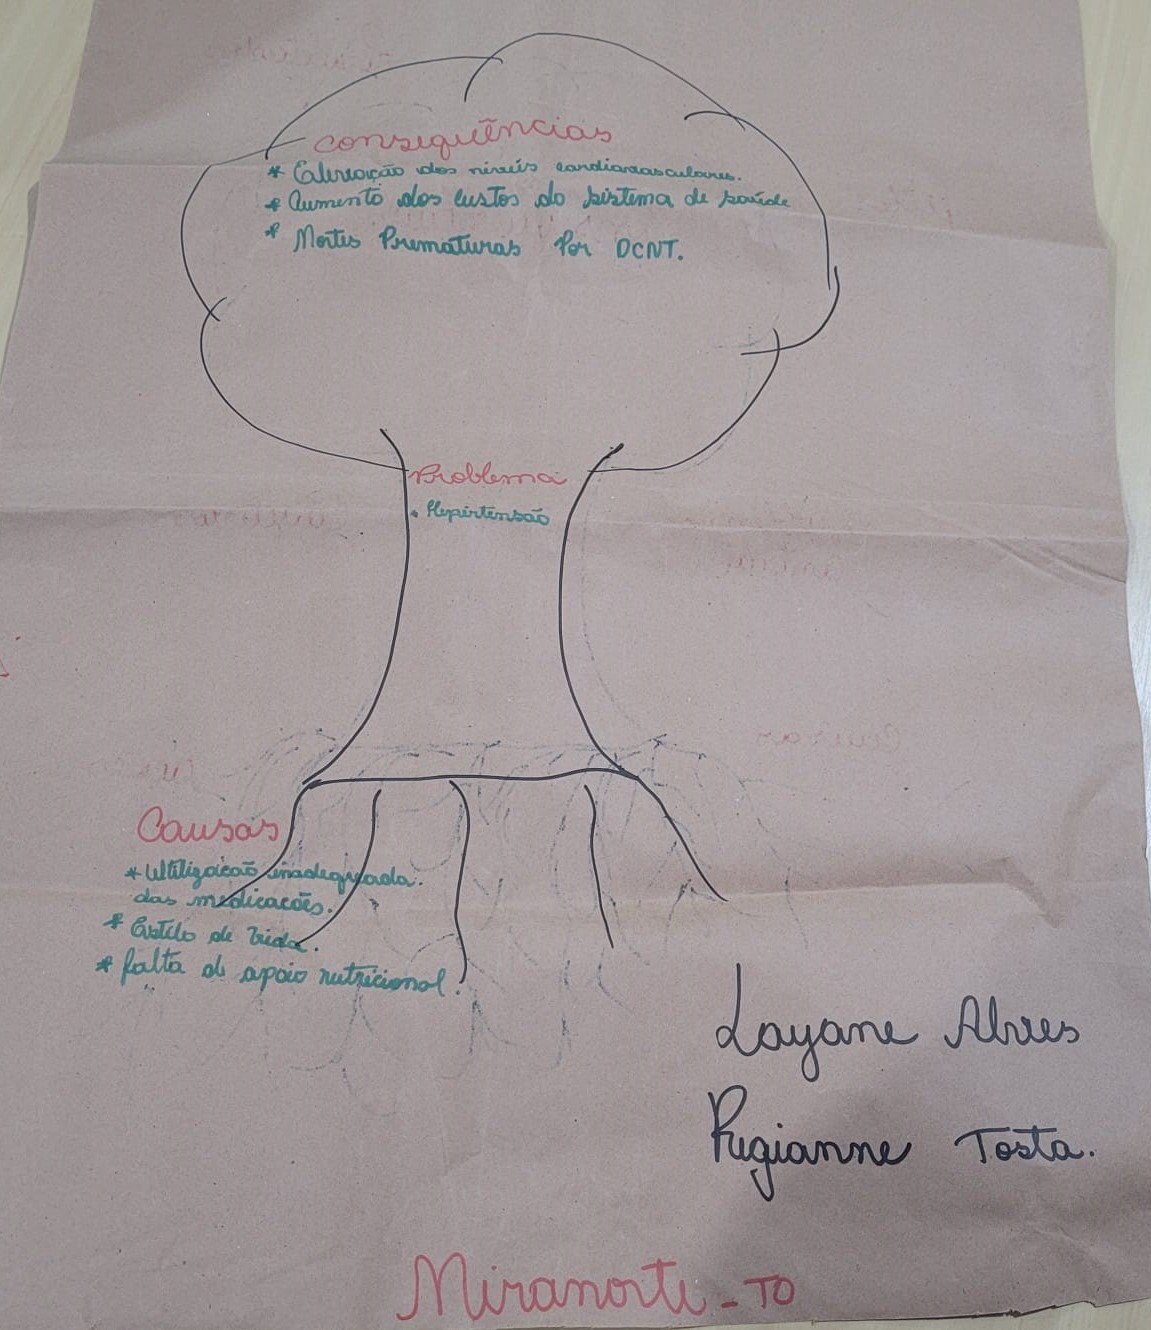 Consequências
* Elevação dos niveís cardiovasculares.
* Aumento dos custos do sistema de saúde
* Mortes Prematuras Por DCNT.
Problema
. Hipertensão
Causas
* Utilização inadequada.
das medicacões.
* Estilo de vida.
* falta de apoio nutricional.
Layane Alves
Rigianne Tosta.
Miranorte - TO